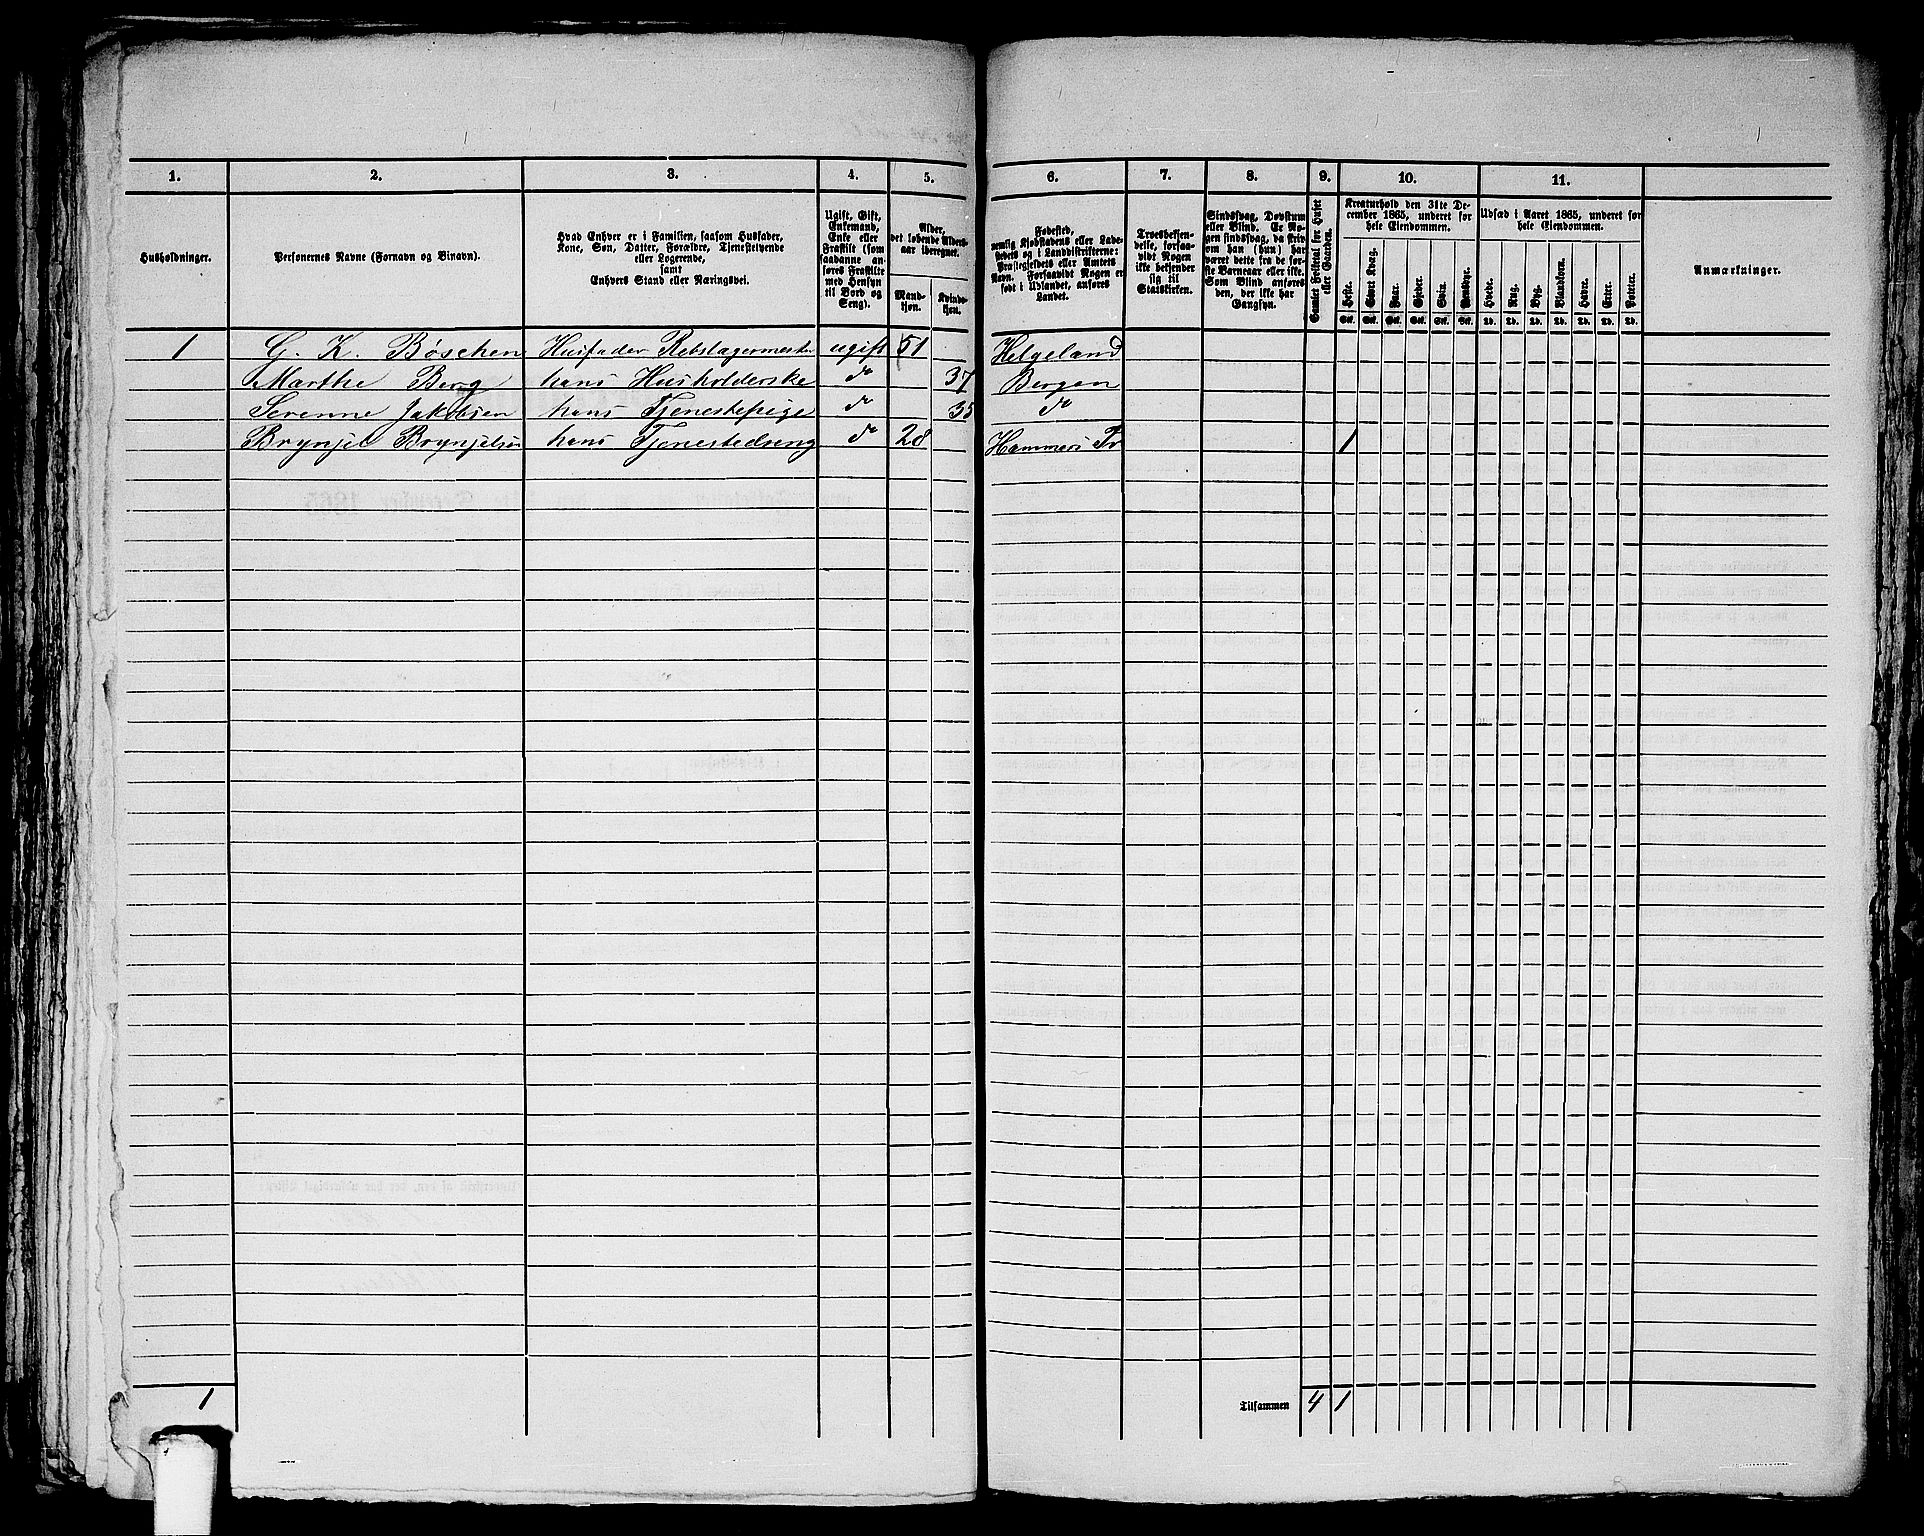 1.
2.
3.
4.
5.
6.
7.
8.
9.
10.
11.
Husholdninger.
Personernes Navne (Fornavn og Binavn).
Hvad Enhver er i Familien, saasom Husfader,
Kone, Søn, Datter, Forældre, Tjenestetyende
eller Logerende,
samt
Enhvers Stand eller Næringsvei.
Ugift, Gift,
Enkemand,
Enke eller
Fraskilt (som
saadanne an-
føres Fraskilte
med Hensyn
til Bord og
Seng).
Alder,
det løbende Alders-
aar iberegnet.
Mand-
kjøn.
Kvinde-
kjøn.
Fødested,
nemlig Kjøbstadens eller Lade-
stedets og i Landdistrikterne:
Præstegjeldets eller Amtets
Navn. Forsaavidt Nogen er
født i Udlandet, anføres
Landet.
Troesbekjen-
delse, forsaa-
vidt Nogen
ikke bekjender
sig til
Statskirken.
Sindssvag, Døvstum
eller Blind. Er No-
gen sindssvag, da hvis
om han (hun) har
været dette fra de før-
ste Barneaar eller ikke.
Som Blind anføres
den, der ikke har
Gangsyn.
Samlet Folketal for Huset
eller Gaarden.
Kreaturhold den 31te De-
cember 1865, underet for
hele Eiendommen.
Heste.
Stort Kvæg.
Faar.
Gjeder.
Sviin.
Rensdyr.
Stk. Stk. Stk. Stk. Stk. Stk.
Udsæd i Aaret 1865, underet for
hele Eiendommen.
Hvede.
Rug.
Byg.
Blandkorn.
Havre.
Erter.
Poteter.
Td. Td. Td. Td. Td. Td. Td.
Anmærkninger.
1 G. K. Bøschen Husfader Rebslagermester ugift 51 Helgeland
Marthe Berg hans Husholderske do 37 Bergen
Serenne Jakobsen hans Tjenestepige do 35 do
Brynjel Brynjelsen hans Tjenestedreng do 28 Hammers Pr 1
1 Tilsammen 4 1